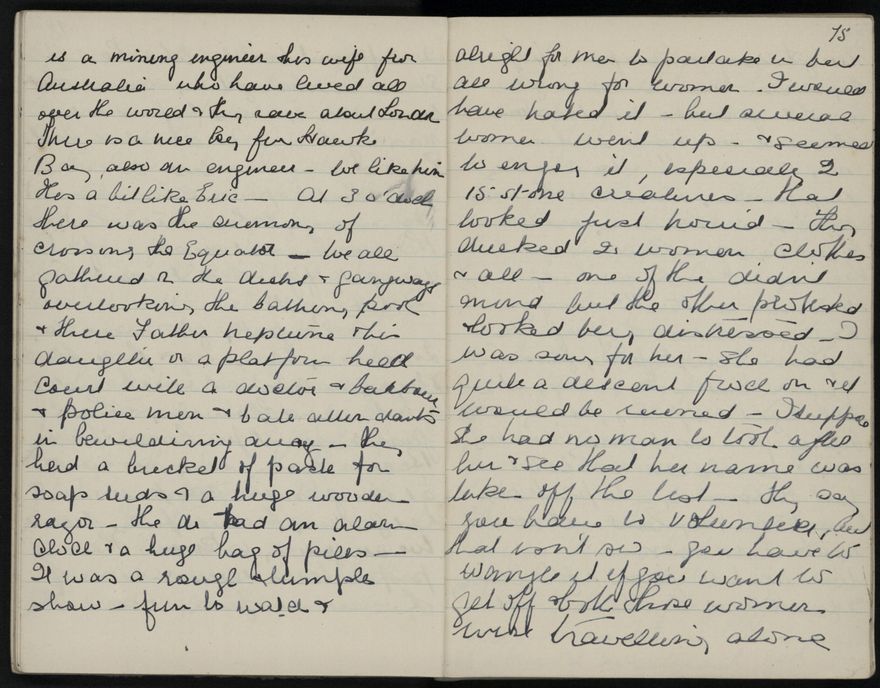 is a mining engineer his wife from
Australia who have lived all
over the world & they rave about London
There is a nice boy from Hawke
Bay, also an engineer - we like him
Hes a bit like Eric - At 3 o clock
there was the ceremony of
crossing the Equator - we all
gathered on the decks & gangways
overlooking the bathing pool
& there Father Neptune & his
daughter on a platform held
Court with a doctor & barbour
& police men & bath attendants
in bewildering array - they
had a bucket of paste for
soap suds & a huge wooden
razor - the dr had an alarm
clock & a huge bag of pills -
It was a rough & tumple
show - fun to watch &
75
alright for men to partake in but
all wrong for women. I would
have hated it - but several
women went up - & seemed
to enjoy it, especially 2
15 stone creatures - that
looked just horrid - they
ducked 2 women clothes
& all - one of the didnt
mind but the other protested
& looked very distressed - I
was sorry for her - she had
quite a descent frock on & it
would be ruined - I suppose
she had no man to look after
her & see that her name was
taken off the list - they say
you have to volunteer, but
that isn't so - you have to
wangle it if you want to
get off & both those women
were travelling alone